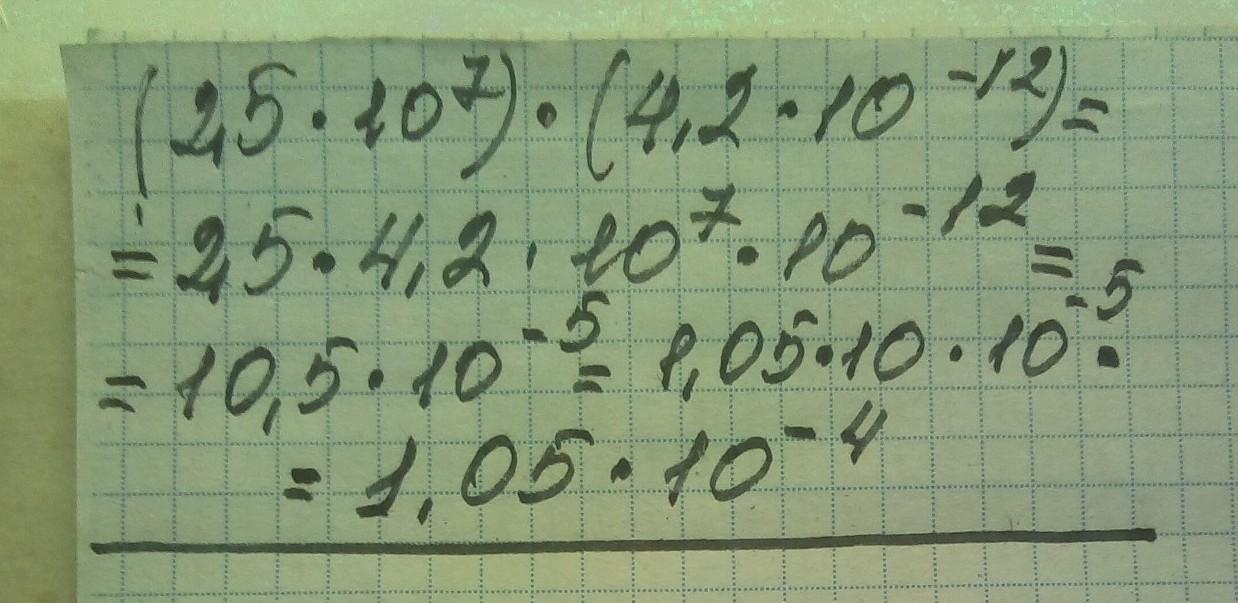 (2,5·10⁷)·(4,2·10⁻¹²)=
=2,5·4,2·10⁷·10⁻¹²=
=10,5·10⁻⁵=1,05·10·10⁻⁵·
=1,05·10⁻⁴